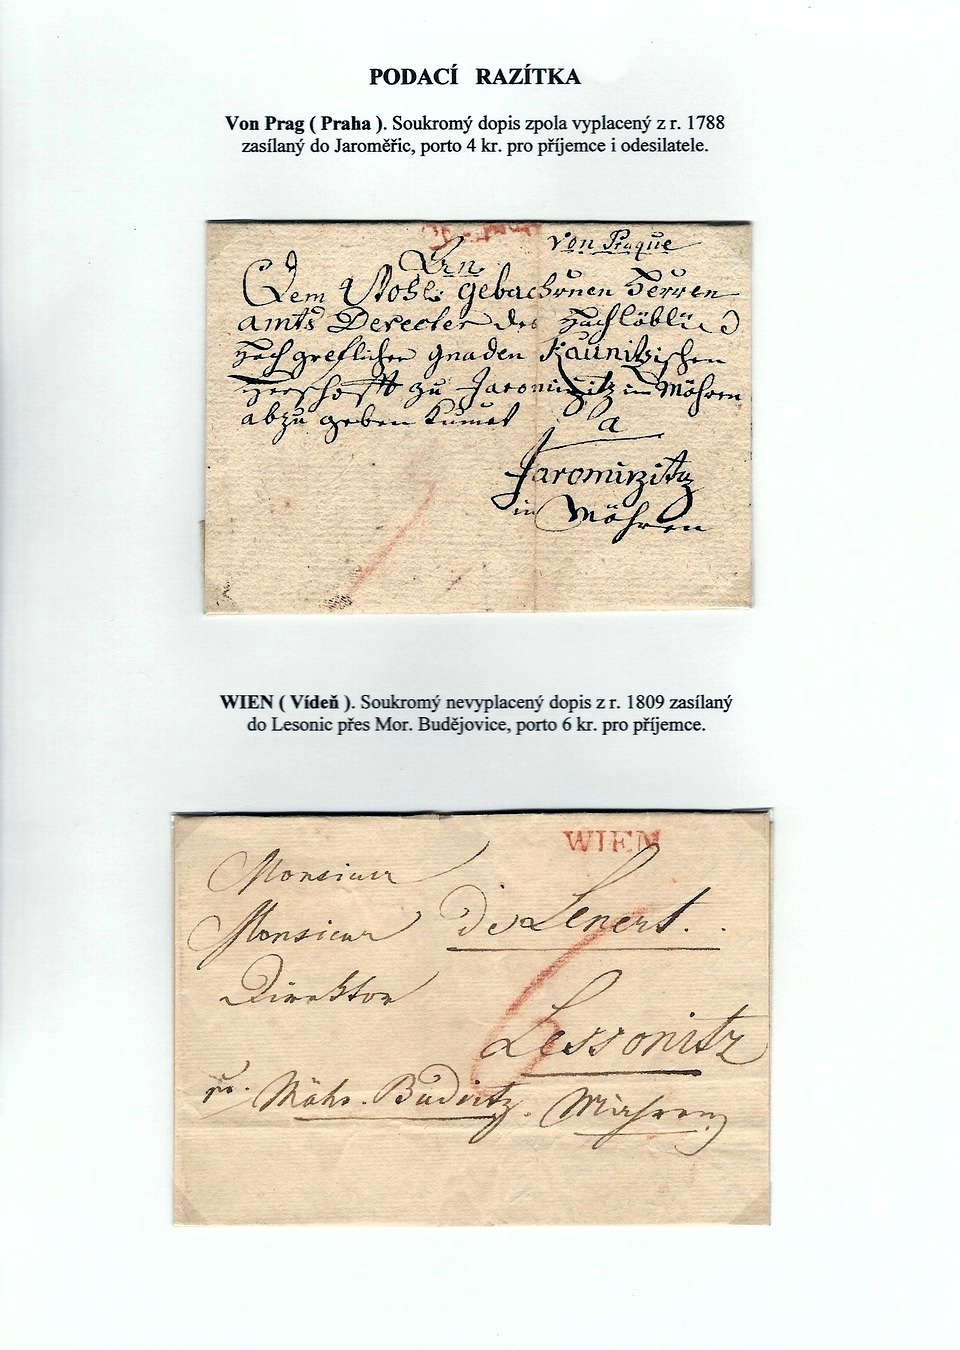 PODACÍ RAZÍTKA
Von Prag ( Praha ). Soukromý dopis zpola vyplacený z r. 1788
zasílaný do Jaroměřic, porto 4 kr. pro příjemce i odesilatele.
Von Prague
Dem Wohl gebachrnen Herren
amts Derecter des Hachlöblich
Hach greflicher gnaden Kaunitzischen
Herschafft zu Jaromirzitz in Möhren
abzu geben kumet a
Jaromirzitz
in Möhren
WIEN ( Vídeň ). Soukromý nevyplacený dopis z r. 1809 zasílaný
do Lesonic přes Mor. Budějovice, porto 6 kr. pro příjemce.
WIEN
Monsieur
Monsieur de Lenert.
Direktor
6
Lessonitz
Mähr. Budwitz. Mähren